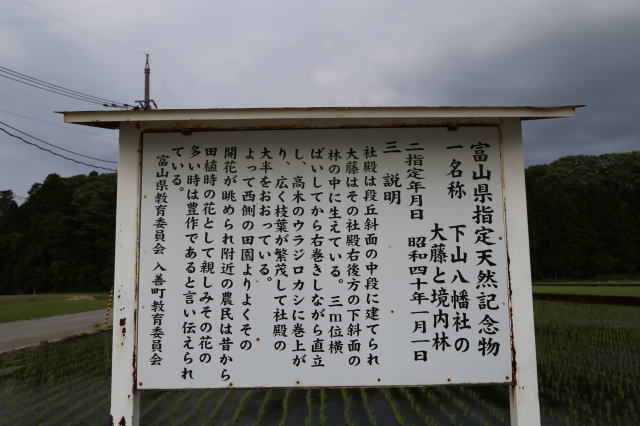 富山県指定天然記念物
一名称 下山八幡社の
大藤と境内林
二指定年月日 昭和四十年一月一日
三 説明
社殿は段丘斜面の中段に建てられ
大藤はその社殿右後方の下斜面の
林の中に生えている。三m位横
ばいしてから右巻きしながら直立
し、高木のウラジロカシに巻上が
り、広く枝葉が繁茂して社殿の
大半をおおっている。
よって西側の田園よりよくその
開花が眺められ附近の農民は昔から
田植時の花として親しみその花の
多い時は豊作であると言い伝えられ
ている。
富山県教育委員会 入善町教育委員会